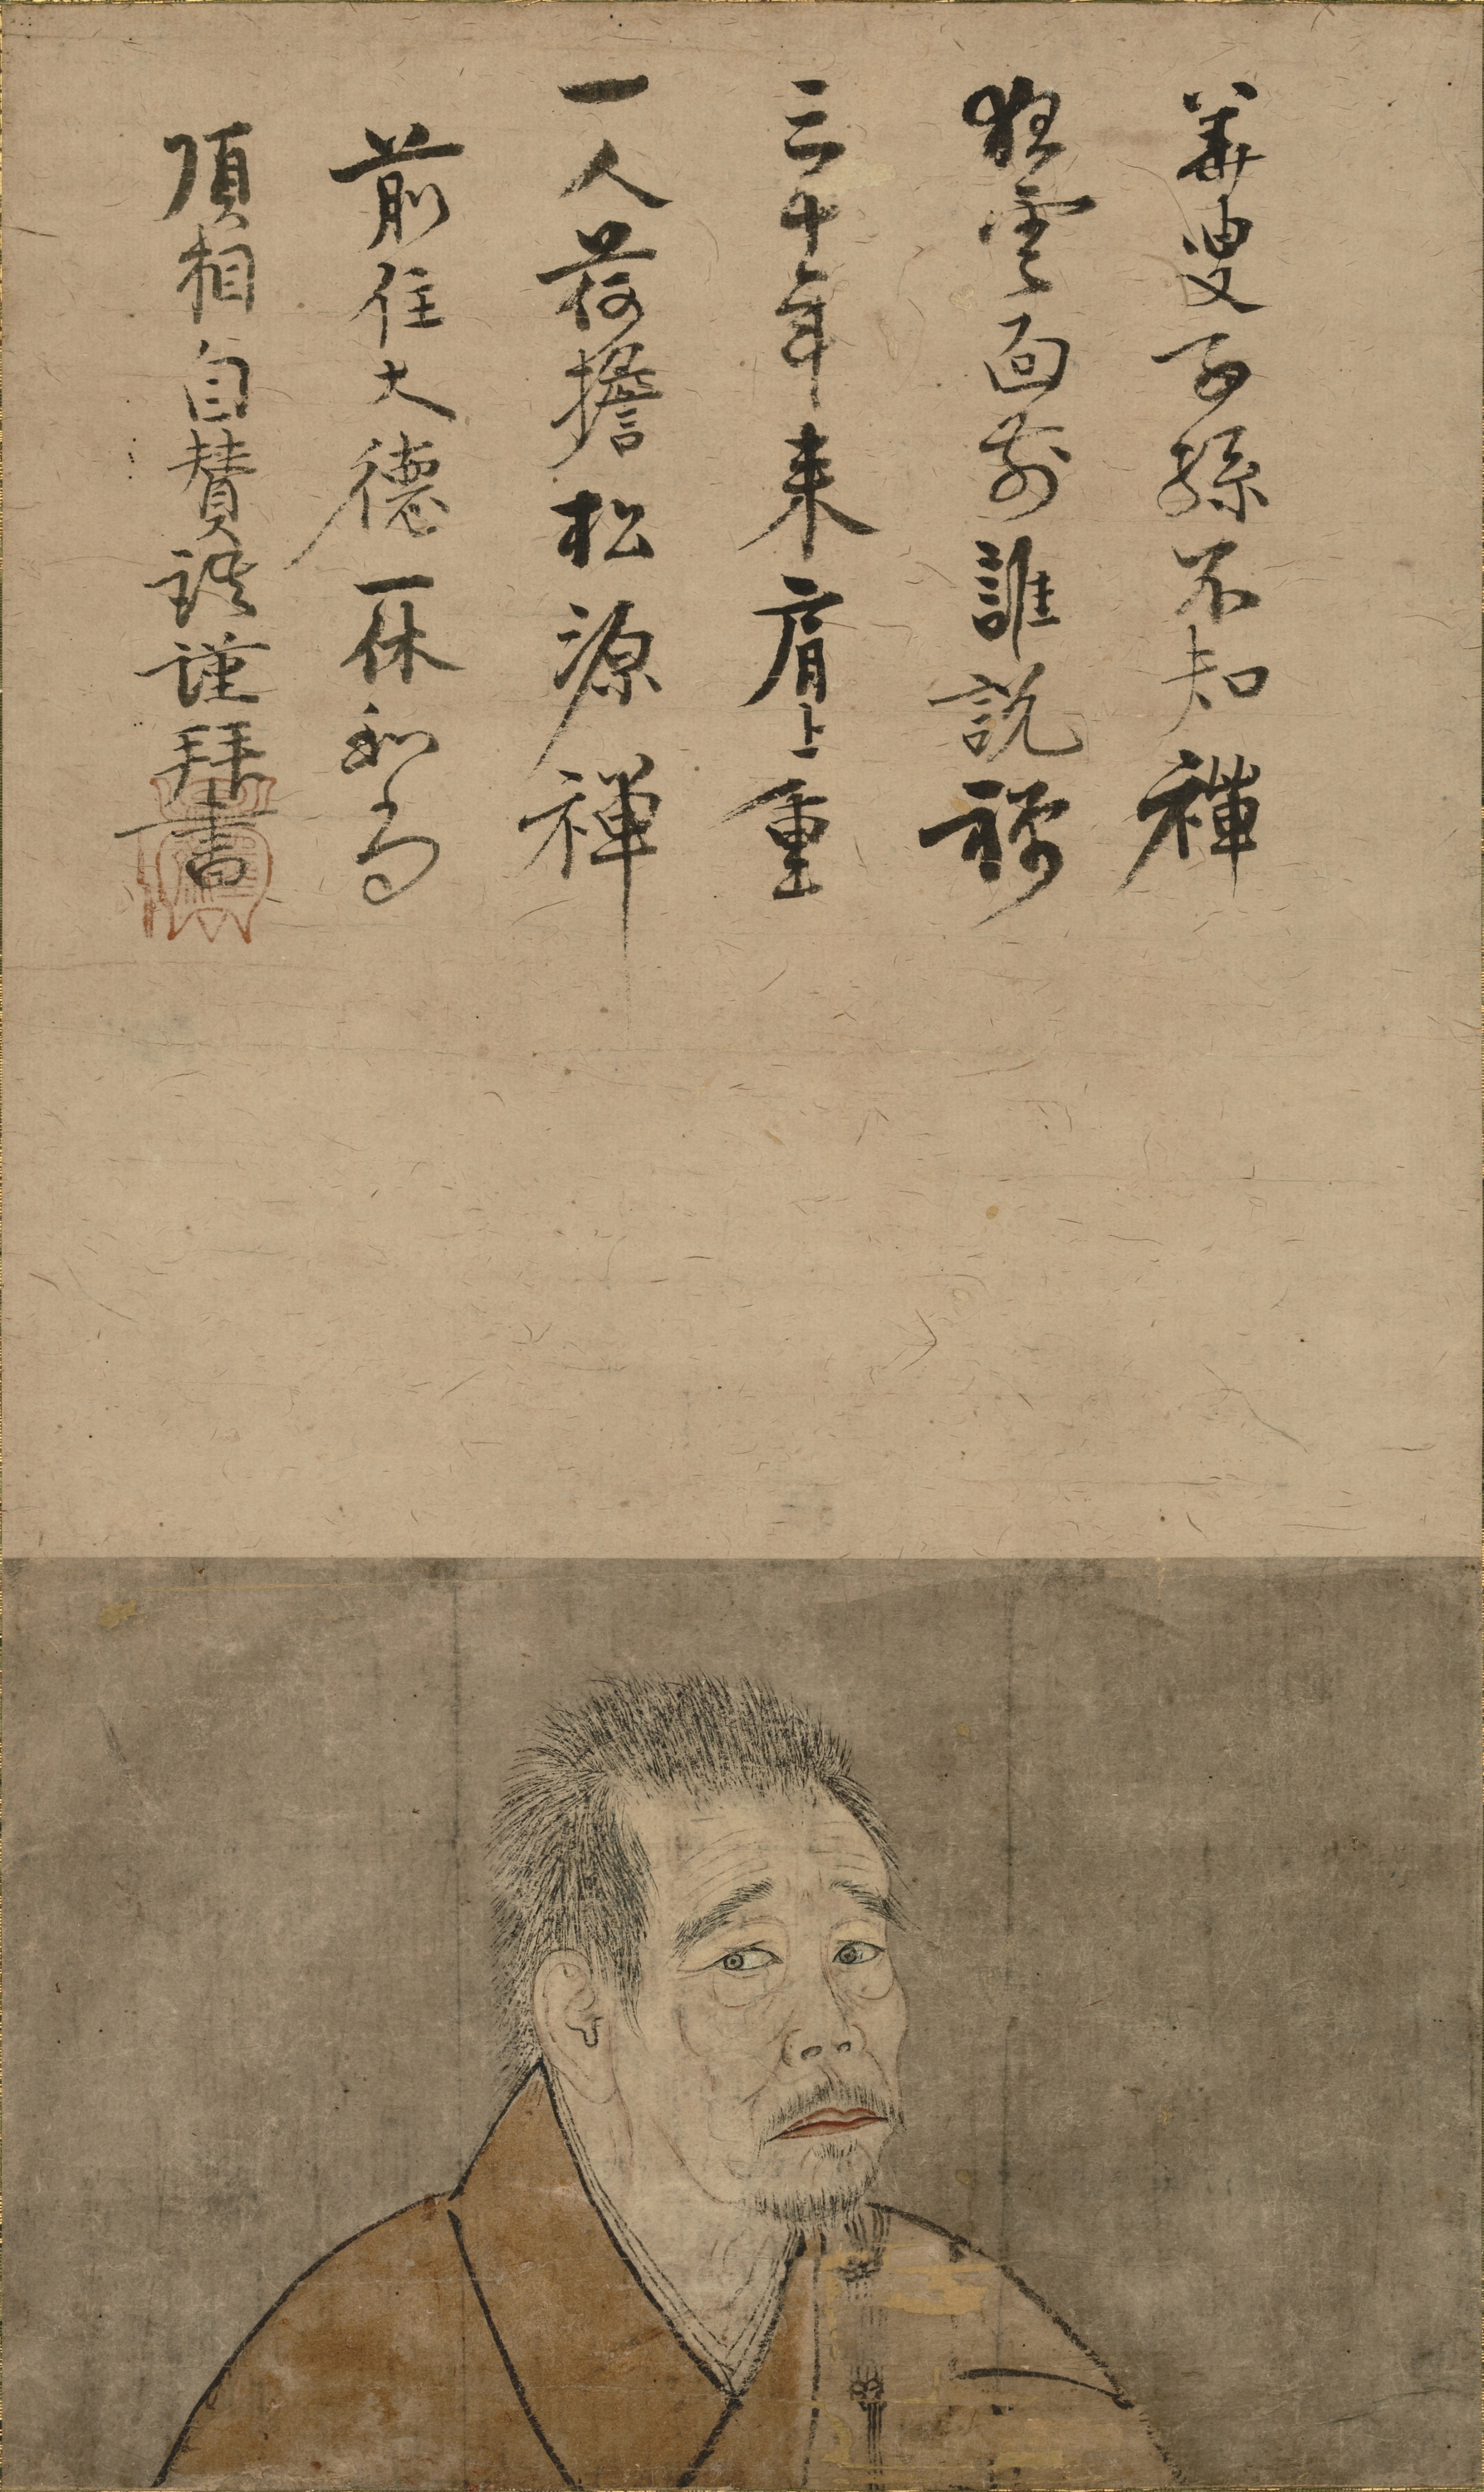 華叟子孫不知禅
狂雲面前誰説禅
三十年来肩上重
一人荷擔松源禅
前住大德一休和尚
頂相自賛語謹拜書